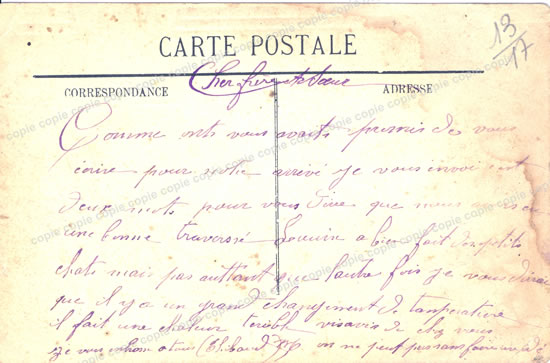 13/17
CARTE POSTALE
CORRESPONDANCE
ADRESSE
Cher frere et Soeur
Comme vous avais promis de vous
écrire pour notre arrivé je vous envoi
deux mots pour vous dire que nous avons
une bonne traversé a bien fait des petits
chats mais pas auttant que l'autre fois je vous dirai
que il y a un grand changement de temperature
il fait une chaleur terible visavis de chez vous
je vous on ne peut pas
copie copie copie copie copie copie copie